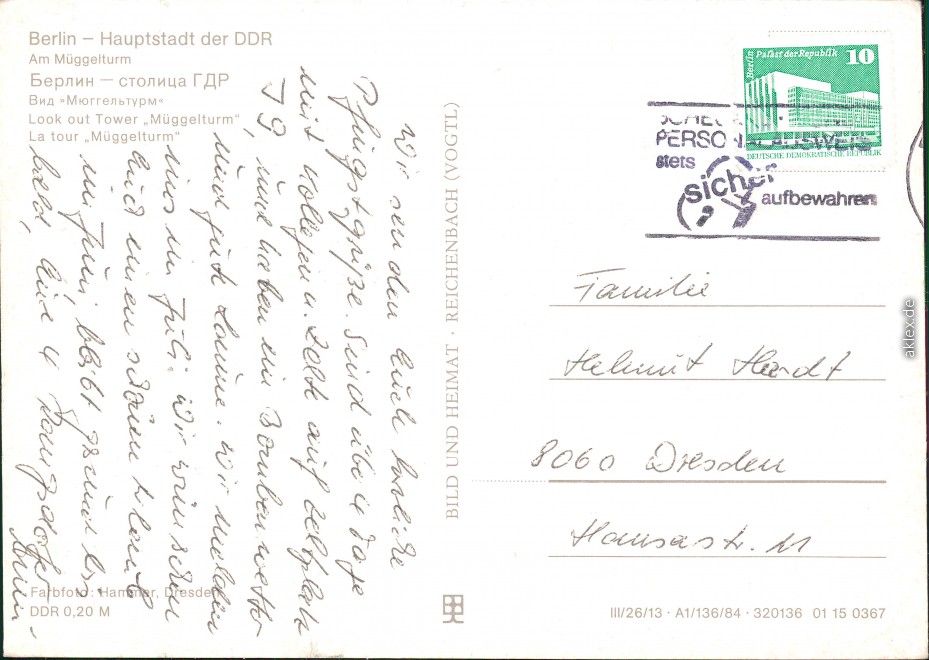 Berlin – Hauptstadt der DDR
Am Müggelturm
Берлин — столица ГДР
Вид »Мюггельтурм«
Look out Tower „Müggelturm“
La tour „Müggelturm“
Wir senden Euch herzliche
Pfingstgrüße. Sind über die Tage
mit Kollegen u. Zelt auf Zeltplatz
J 9, und haben ein Bombenwetter
und gute Laune. Wir melden
uns im Juli. Wir wünschen
Euch einen schönen Urlaub
im Juni, bleibt gesund bis
bald, Eure 4
Farbfoto: Hammer, Dresden
DDR 0,20 M
BILD UND HEIMAT · REICHENBACH (VOGTL)
Berlin Palast der Republik 10
DEUTSCHE DEMOKRATISCHE REPUBLIK
PERSONALAUSWEIS
stets
sicher
aufbewahren
Familie
Helmut Hardt
8060 Dresden
Hansastr. 11
III/26/13 · A1/136/84 · 320136 01 15 0367
aklex.de